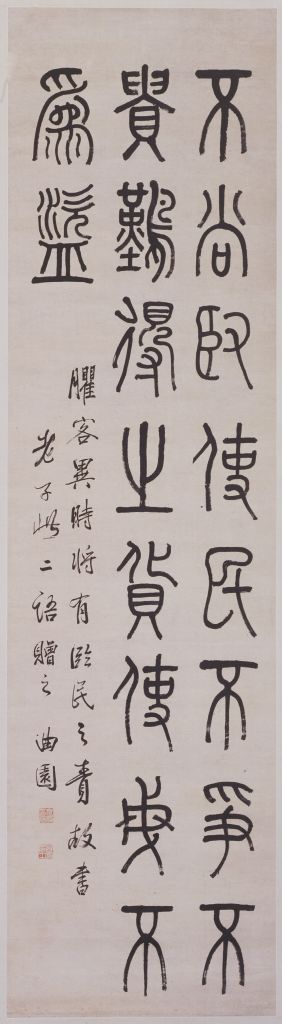 不尚臤使民不爭不
貴難得之貨使民不
為盜
臞客異時將有臨民之責故書
老子此二語贈之 曲園